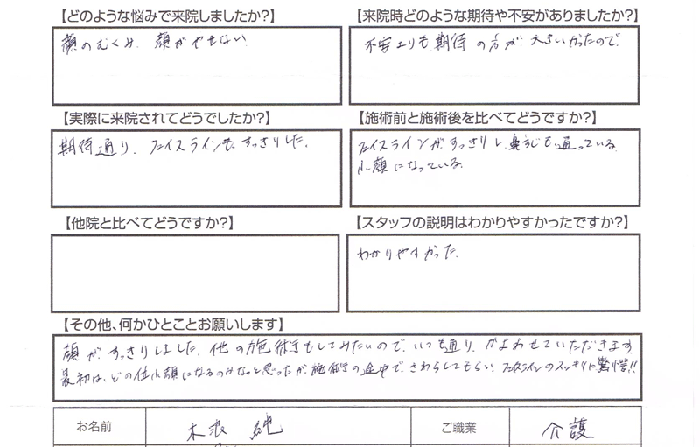 【どのような悩みで来院しましたか?】
顔のむくみ、顔がやせない
【来院時どのような期待や不安がありましたか?】
不安よりも期待の方が大きいかったので。
【実際に来院されてどうでしたか?】
期待通り、フェイスラインも、すっきりした。
【施術前と施術後を比べてどうですか?】
フェイスラインが、すっきりし、鼻すじも通っている
小顔になっている。
【他院と比べてどうですか?】
【スタッフの説明はわかりやすかったですか?】
わかりやすかった。
【その他、何かひとことお願いします】
顔が、すっきりしました。他の施術もしてみたいので、いつも通り、かよわせていただきます
最初は、どの位小顔になるのかなと思ったが施術の途中で、さわらしてもらい フェイスラインのスッキリに驚愕!!
お名前
純
ご職業
介護